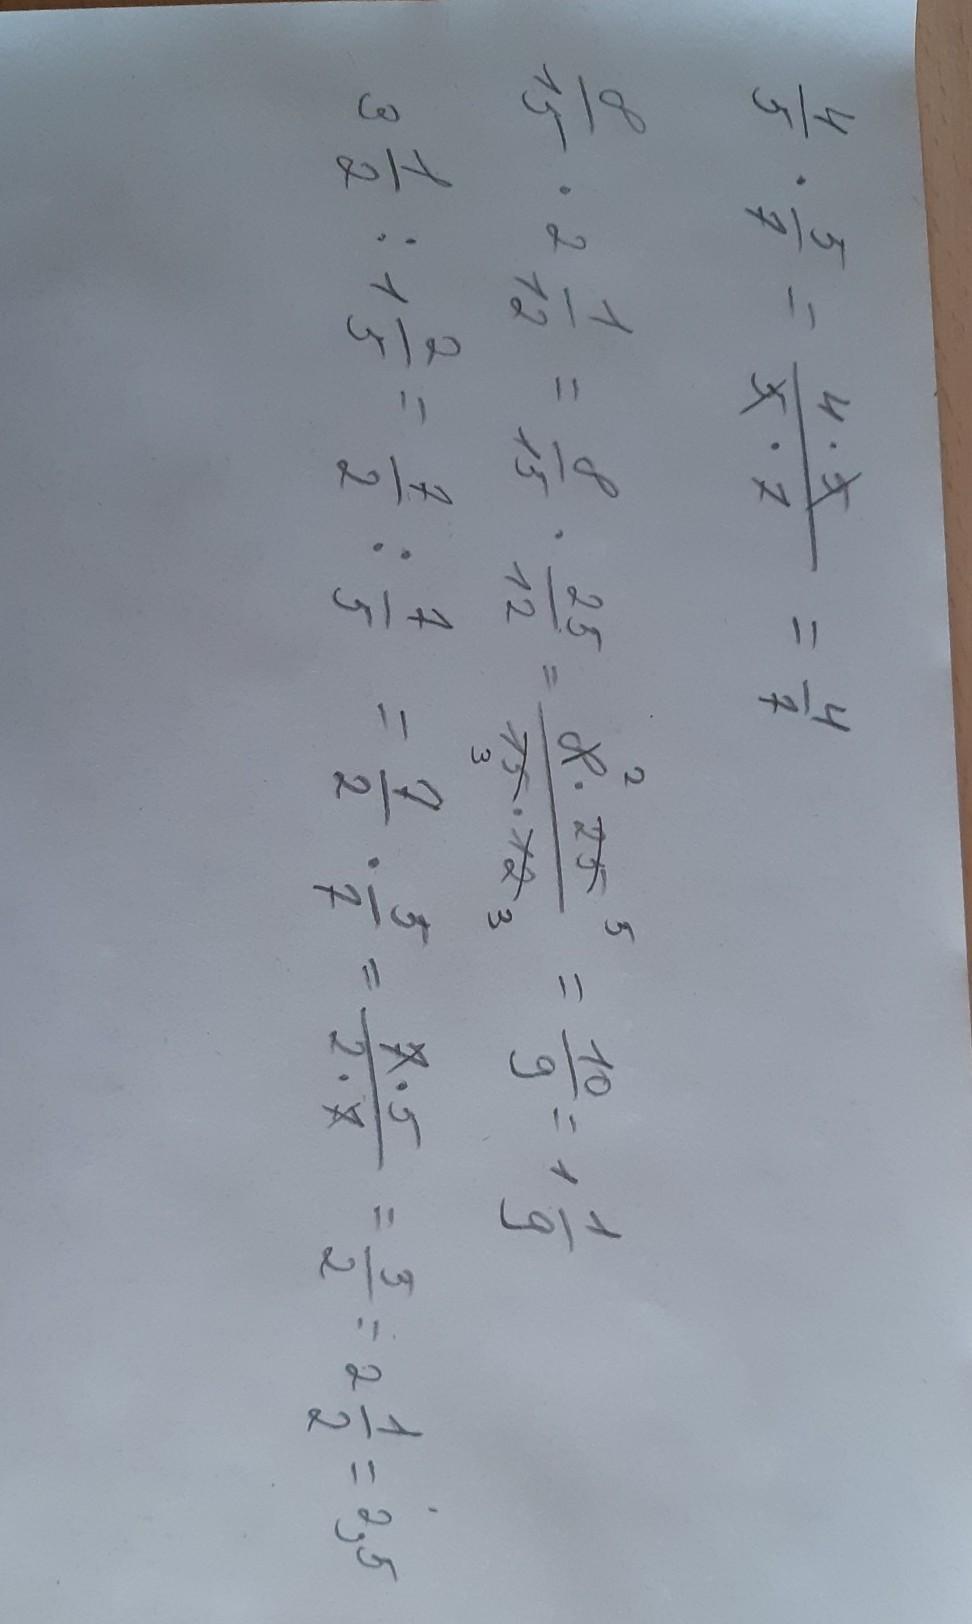 4/5 · 5/7 = 4·5/5·7 = 4/7
8/15 · 2 1/12 = 8/15 · 25/12 = 8·25/15·12 2 5 3 3 = 10/9 = 1 1/9
3 1/2 : 1 2/5 = 7/2 : 7/5 = 7/2 · 5/7 = 7·5/2·7 = 5/2 = 2 1/2 = 2,5